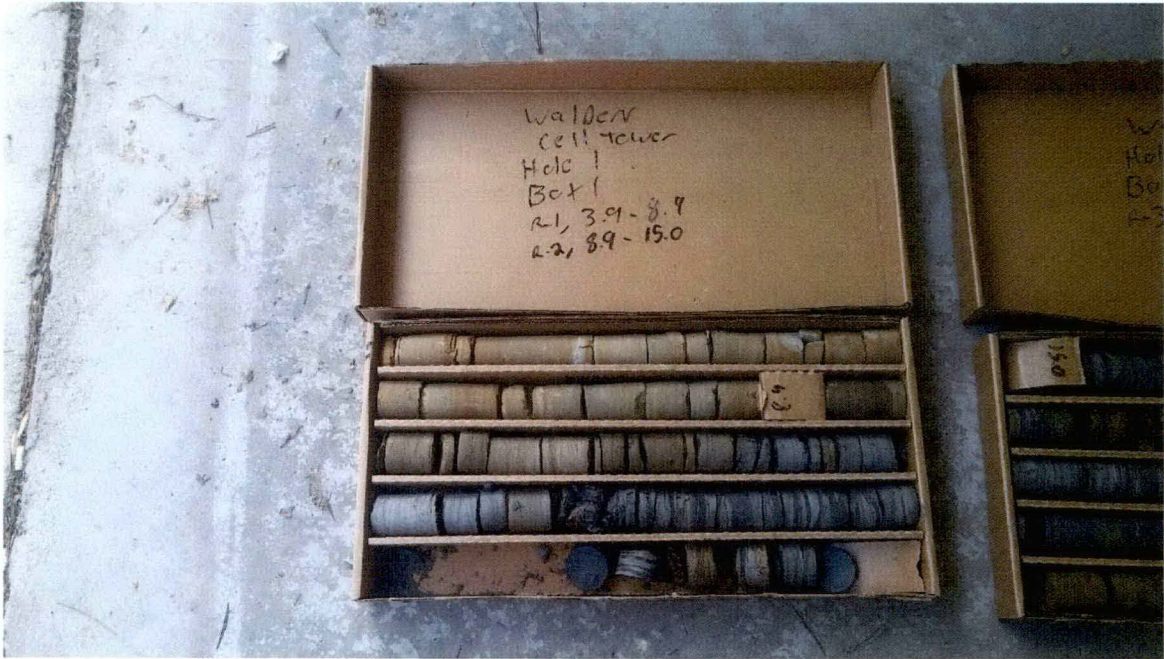 Walden
Cell Tower
Hole 1
Box 1
R-1, 3.9 - 8.9
R-2, 8.9 - 15.0
W
Hol
Bo
R-3